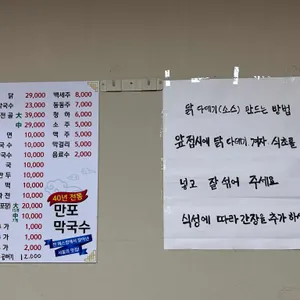 닭 29,000
막국수 23,000
전골 大 39,000
中 29,000
국수 10,000
면 10,000
막국수 10,000
국수 10,000
만두 10,000
떡 10,000
大 20,000
中 16,000
추가 1,000
추가 2,000
추가 1,000
12,000
백세주 8,000
동동주 7,000
청하 6,000
소주 5,000
맥주 5,000
막걸리 5,000
음료수 2,000
40년 전통
만포
막국수
닭 다데기(소스) 만드는 방법
앞접시에 닭 다데기 겨자, 식초를
넣고 잘 섞어 주세요
식성에 따라 간장을 추가 하